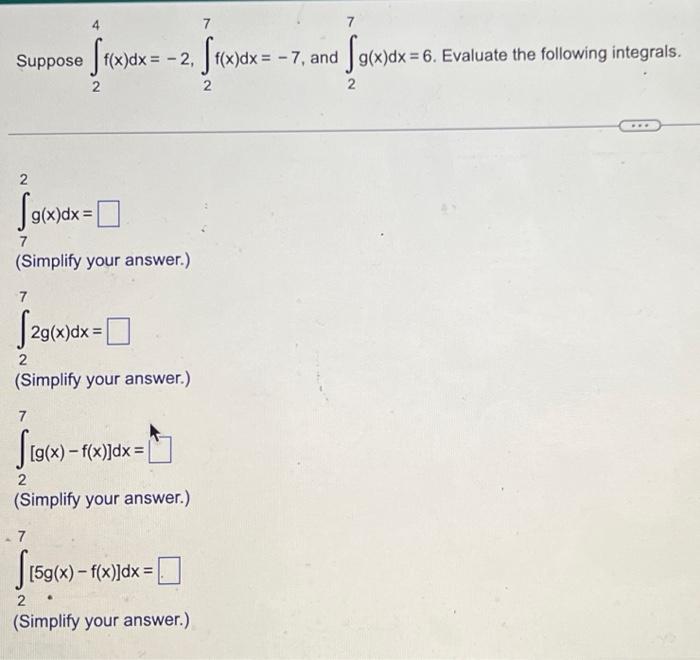 Suppose ∫₂⁴ f(x)dx = − 2, ∫₂⁷ f(x)dx = − 7, and ∫₂⁷ g(x)dx = 6. Evaluate the following integrals.
∫₇² g(x)dx =
(Simplify your answer.)
∫₂⁷ 2g(x)dx =
(Simplify your answer.)
∫₂⁷ [g(x) − f(x)]dx =
(Simplify your answer.)
∫₂⁷ [5g(x) − f(x)]dx =
(Simplify your answer.)